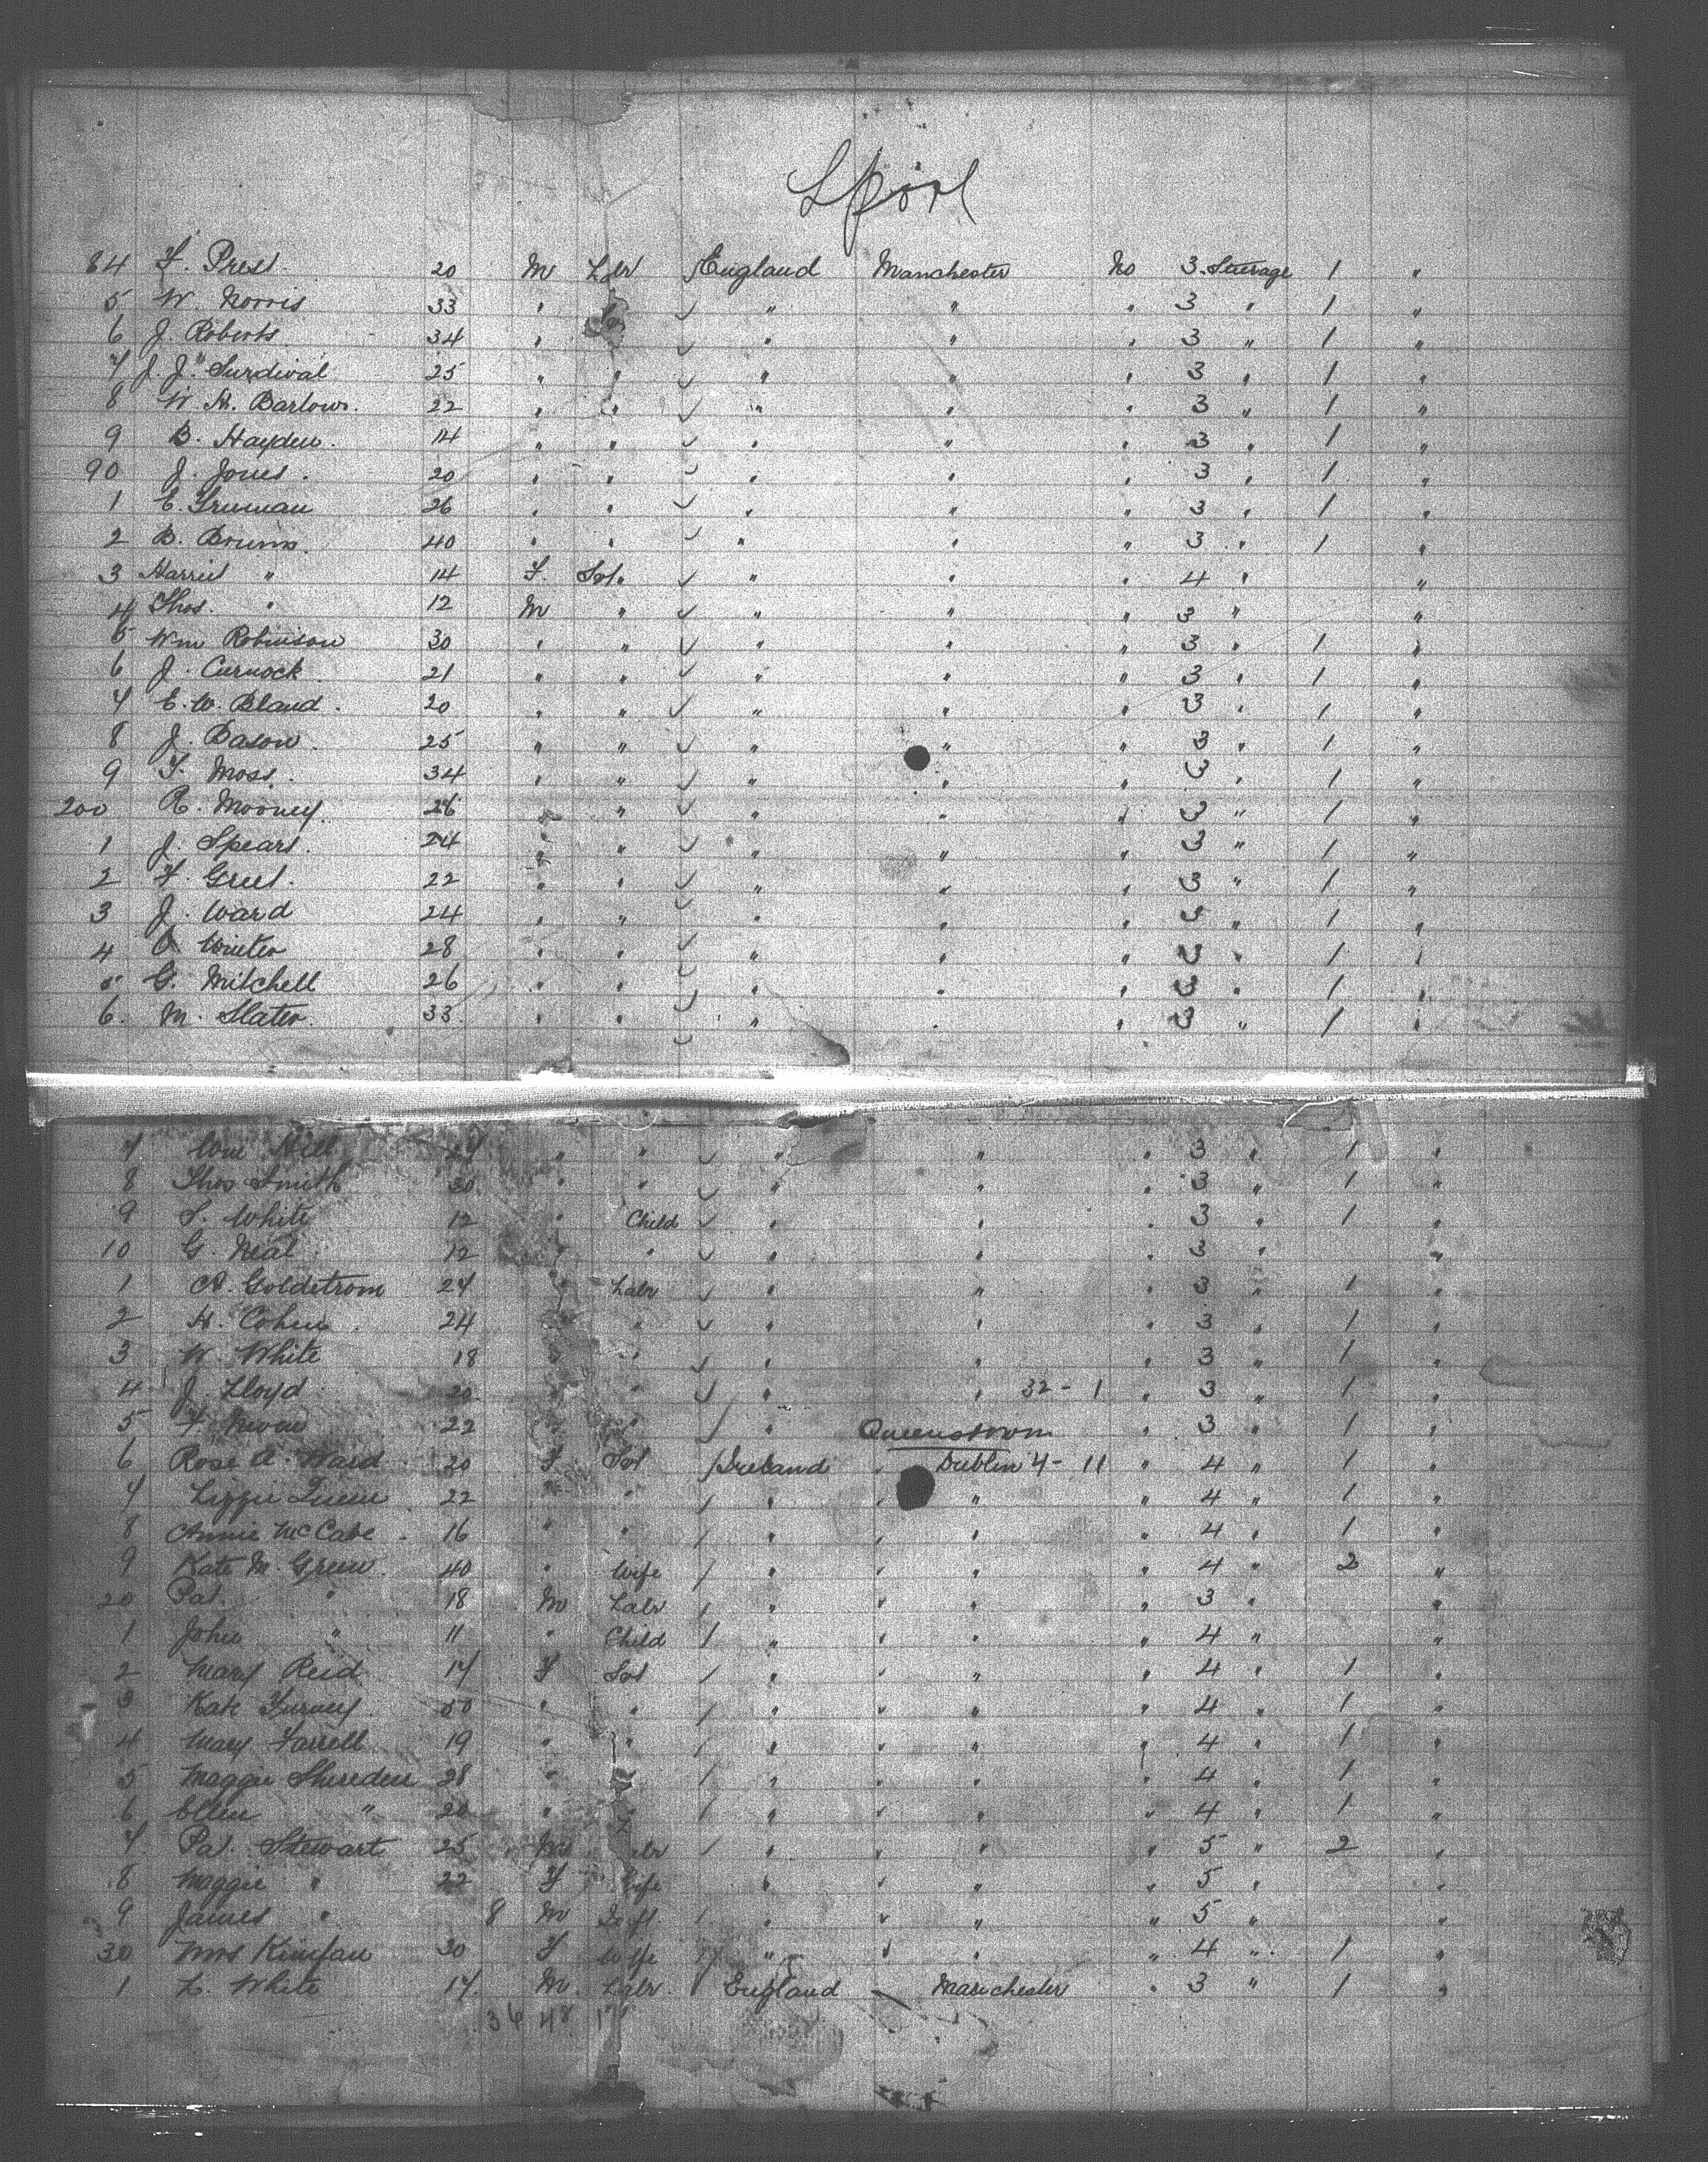 Lpool
84 F. Prest. 20 M Lbr England Manchester No 3. Steerage 1 "
5 W. Norris 33 " " " " 3 " 1 "
6 J. Roberts 34 " " " " 3 " 1 "
7 J. J. Surdival 25 " " " " " 3 " 1 "
8 W. H. Barlow. 22 " " " " " 3 " 1 "
9 B. Hayden. 14 " " " " " 3 " 1 "
90 J. Jones. 20 " " " " " 3 " 1 "
1 E. Truman 26 " " " " " 3 " 1 "
2 B. Brums. 40 " " " " " 3 " 1 "
3 Harriet " 14 F. Spt. " " " 4 " "
4 Thos. " 12 M " " " " 3 " "
5 Wm Robinson 30 " " " " " 3 " 1 "
6 J. Curnock 21 " " " " " 3 " 1 "
7 E. W. Bland. 20 " " " " " 3 " 1 "
8 J. Bason. 25 " " " " " 3 " 1 "
9 T. Moss. 34 " " " " " 3 " 1 "
200 R. Mooney. 26 " " " " " 3 " 1 "
1 J. Spears. 24 " " " " " 3 " 1 "
2 F. Greet. 22 " " " " " 3 " 1 "
3 J. Ward 24 " " " " " 3 " 1 "
4 Winter 28 " " " " " 3 " 1 "
5 G. Mitchell 26 " " " " " 3 " 1 "
6. M. Slater. 33. " " " " " 3 " 1 "
7 Wm Hill " " " " " 3 " 1 "
8 Thos Smith 30 " " " " " 3 " 1 "
9 S. White 12 " Child " " " 3 " 1 "
10 G. Neal 12 " " " " " 3 " "
1 A. Goldstrom 24 " Labr " " " 3 " 1 "
2 H. Cohen. 24 " " " " " 3 " 1 "
3 W. White 18 " " " " " 3 " 1 "
4 J. Lloyd 20 " " " " 32 - 1 " 3 " 1 "
5 22 " " " Queenstown " 3 " 1 "
6 Rose A. Ward 20 F Spt Ireland " Dublin 4 - 11 " 4 " 1 "
7 Lizzie Quinn 22 " " " " " " 4 " 1 "
8 Annie McCabe 16 " " " " " " 4 " 1 "
9 Kate M. Green. 40 " Wife " " " " 4 " 2 "
20 Pat. " 18 M Labr " " " " 3 " "
1 John " 11 " Child " " " " 4 " "
2 Mary Reid 17 F Spt " " " " 4 " 1 "
3 Kate Furney 50 " " " " " " 4 " 1 "
4 Mary Farrell 19 " " " " " " 4 " 1 "
5 Maggie Shereden 28 " " " " " 4 " 1 "
6 Ellen " 20 " " " " " 4 " 1 "
7 Pat. Stewart 25 M Labr " " " " 5 " 2 "
8 Maggie " 22 F Wife " " " " 5 " "
9 James " 8 M Inft. " " " " 5 " "
30 Mrs 30 F Wife " " " " 4 " 1 "
1 L. White 17. M. Labr. England Manchester " 3 " 1 "
36 48 1